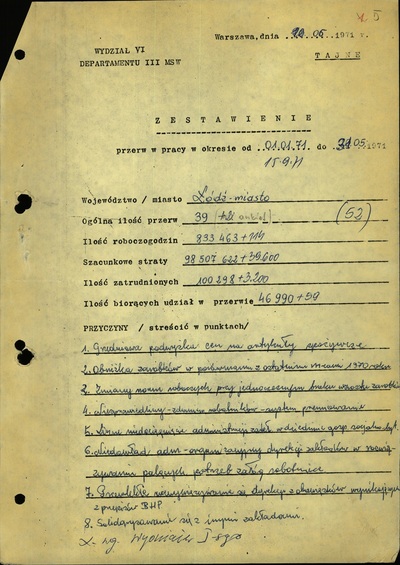 5
Warszawa, dnia 20 05 1971 r.
WYDZIAŁ VI
DEPARTAMENTU III MSW
TAJNE
ZESTAWIENIE
przerw w pracy w okresie od 01.01.71 do 31.05.1971
15.9.71
Województwo / miasto Łódź-miasto
Ogólna ilość przerw 39
(52)
Ilość roboczogodzin 833 463 + 114
Szacunkowe straty 98 507 622 + 39.600
Ilość zatrudnionych 100 298 + 3.200
Ilość biorących udział w przerwie 46 990 + 59
PRZYCZYNY / streścić w punktach/
1. Grudniowa podwyżka cen na artykuły spożywcze
2. Obniżka zarobków w porównaniu z ostatnim 1970 roku
3. Zmiany norm roboczych przy jednoczesnym braku wzrostu zarobków
4. Niesprawiedliwy zdaniem robotników system premiowania
5. Liczne niedociągnięcia administracji zakł. w dziedzinie gosp. socjalno byt.
6. Nieudolność adm. organizacyjna dyrekcji zakładów w rozwią-
zywaniu palących potrzeb załóg robotnice
7. Przewlekłe niewywiązywanie się dyrekcji z obowiązków wynikających
z przepisów BHP
8. Solidaryzowanie się z innymi zakładami.